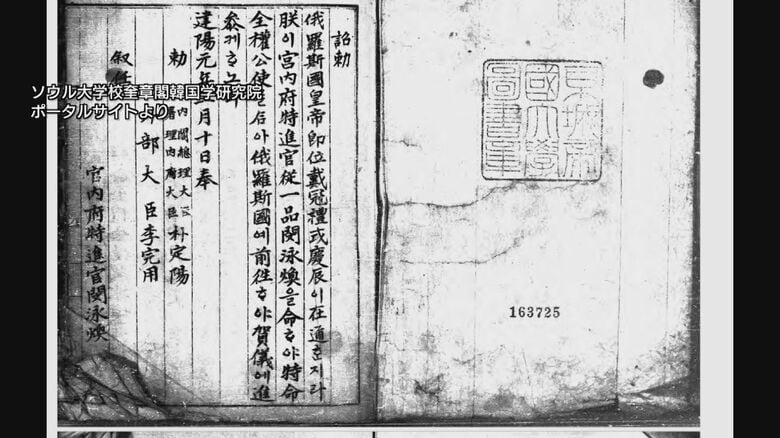 詔勅
俄羅斯國皇帝即位戴冠禮式慶辰이在邇혼지라
朕이宮内府特進官從一品閔泳煥을命하야特命
全權公使를삼아俄羅斯國에前徃하야賀儀에進
叅케하노라
建陽元年三月十日奉
勅
内閣總理大臣
署理内部大臣
朴定陽
部大臣李完用
叙任
宮内府特進官閔泳煥
京城帝
國大學
圖書章
163725
ソウル大学校奎章閣韓国学研究院
ポータルサイトより